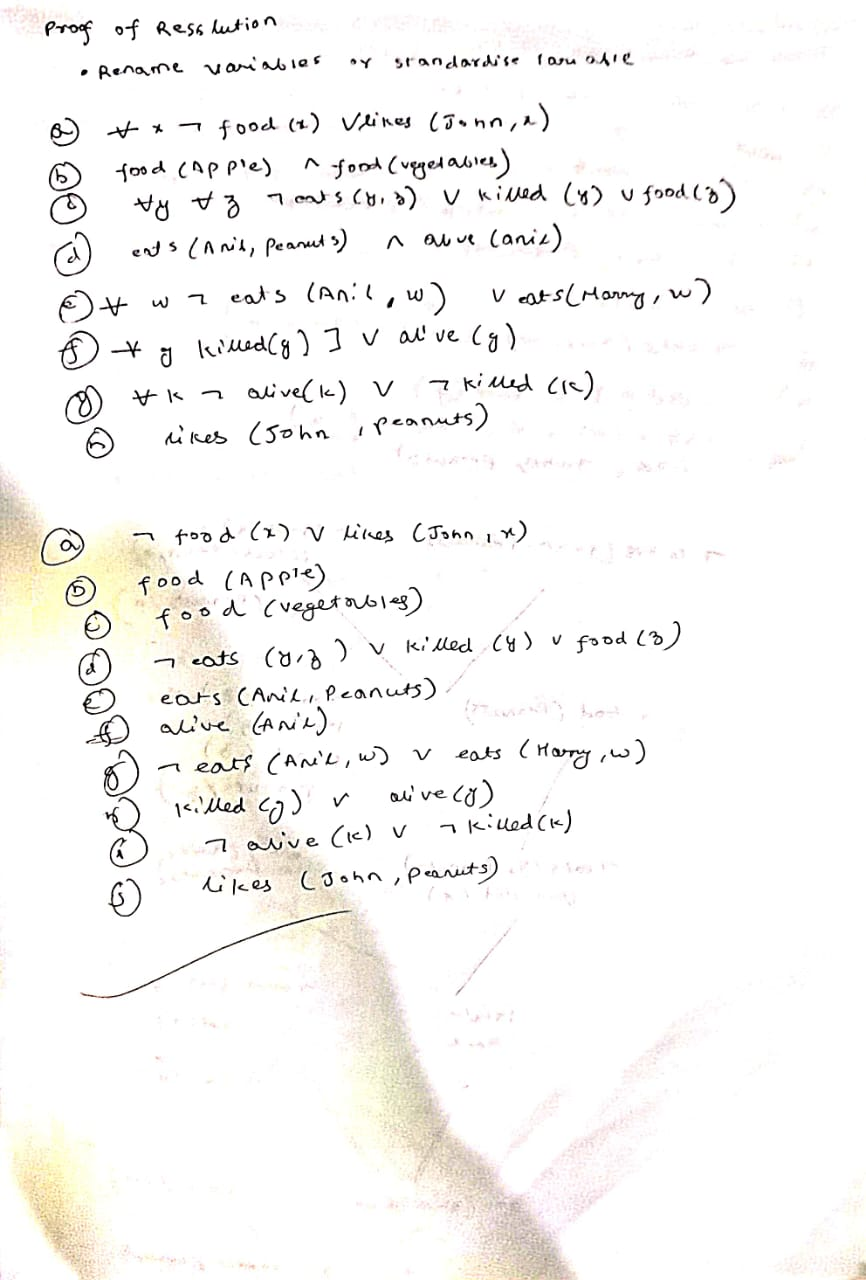 Proof of Resslution
• Rename variables or standardise variable
(a) ∀ x ¬ food (x) V likes (John, x)
(b) food (Apple) ∧ food (vegetables)
(c) ∀y ∀z ¬ eats (y, z) ∨ killed (y) ∨ food (z)
(d) eats (Anil, Peanuts) ∧ alive (anil)
(e) ∀ w ¬ eats (Anil, w) ∨ eats (Harry, w)
(f) ∀ g killed(g) ] ∨ alive (g)
(g) ∀ k ¬ alive(k) ∨ ¬ killed (k)
(h) likes (John, peanuts)
(a) ¬ food (x) ∨ likes (John, x)
(b) food (Apple)
(c) food (vegetables)
(d) ¬ eats (y, z) ∨ killed (y) ∨ food (z)
(e) eats (Anil, Peanuts)
(f) alive (Anil)
(g) ¬ eats (Anil, w) ∨ eats (Harry, w)
(h) killed (g) ∨ alive (g)
(i) ¬ alive (k) ∨ ¬ killed (k)
(j) likes (John, peanuts)